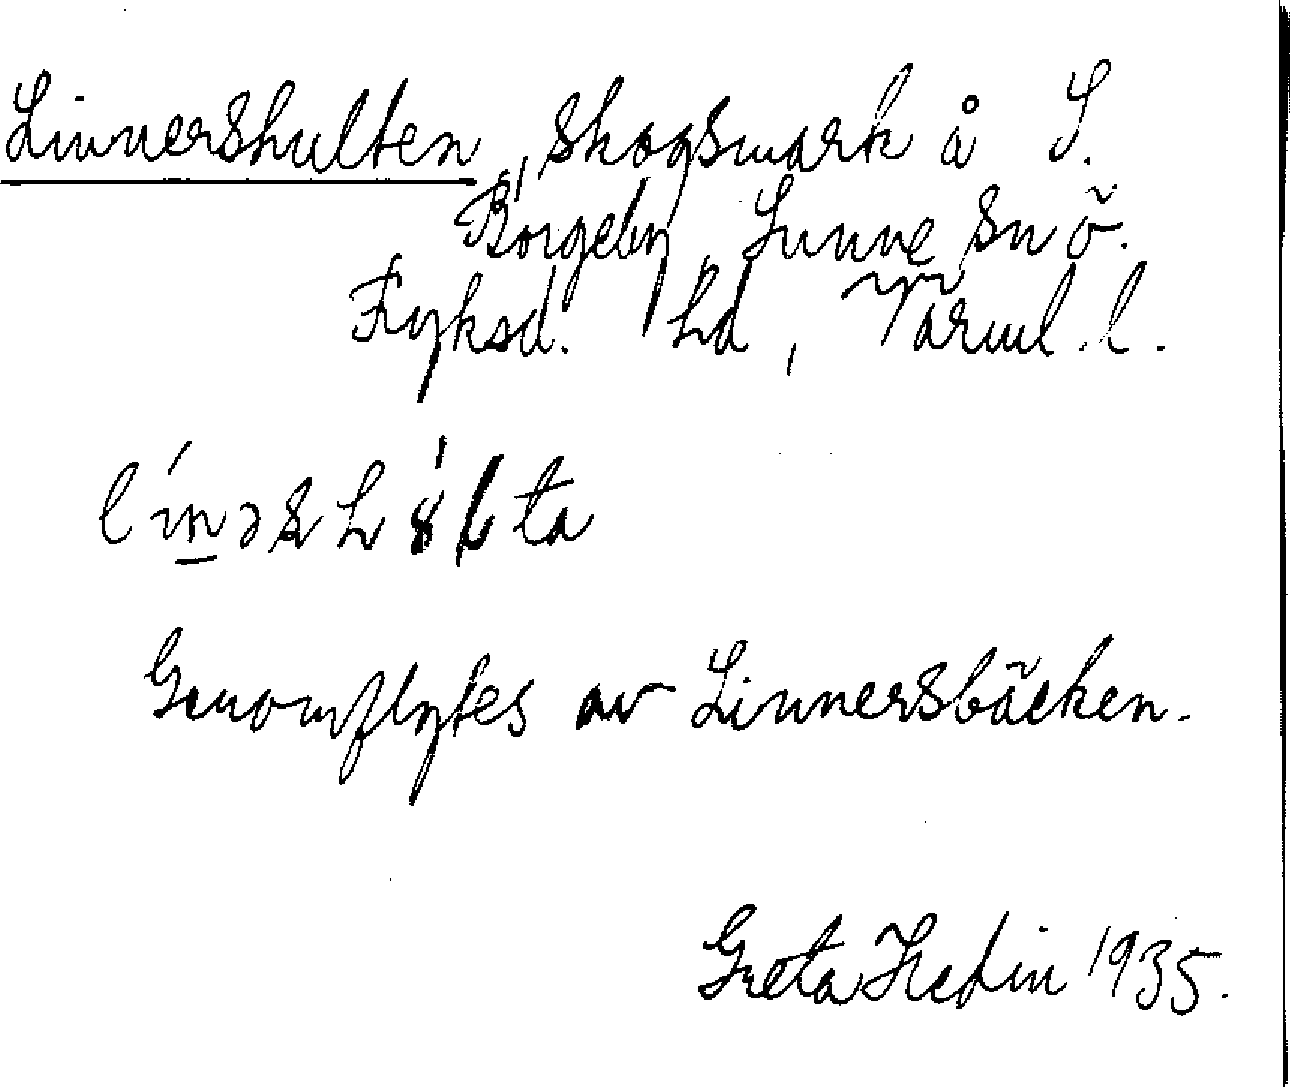 Linnershulten, skogsmark å S.
Börgeby, Sunne sn ö.
Fryksd. hd, Värml. l.
Genomflytes av Linnersbäcken.
Greta Hedin 1935.